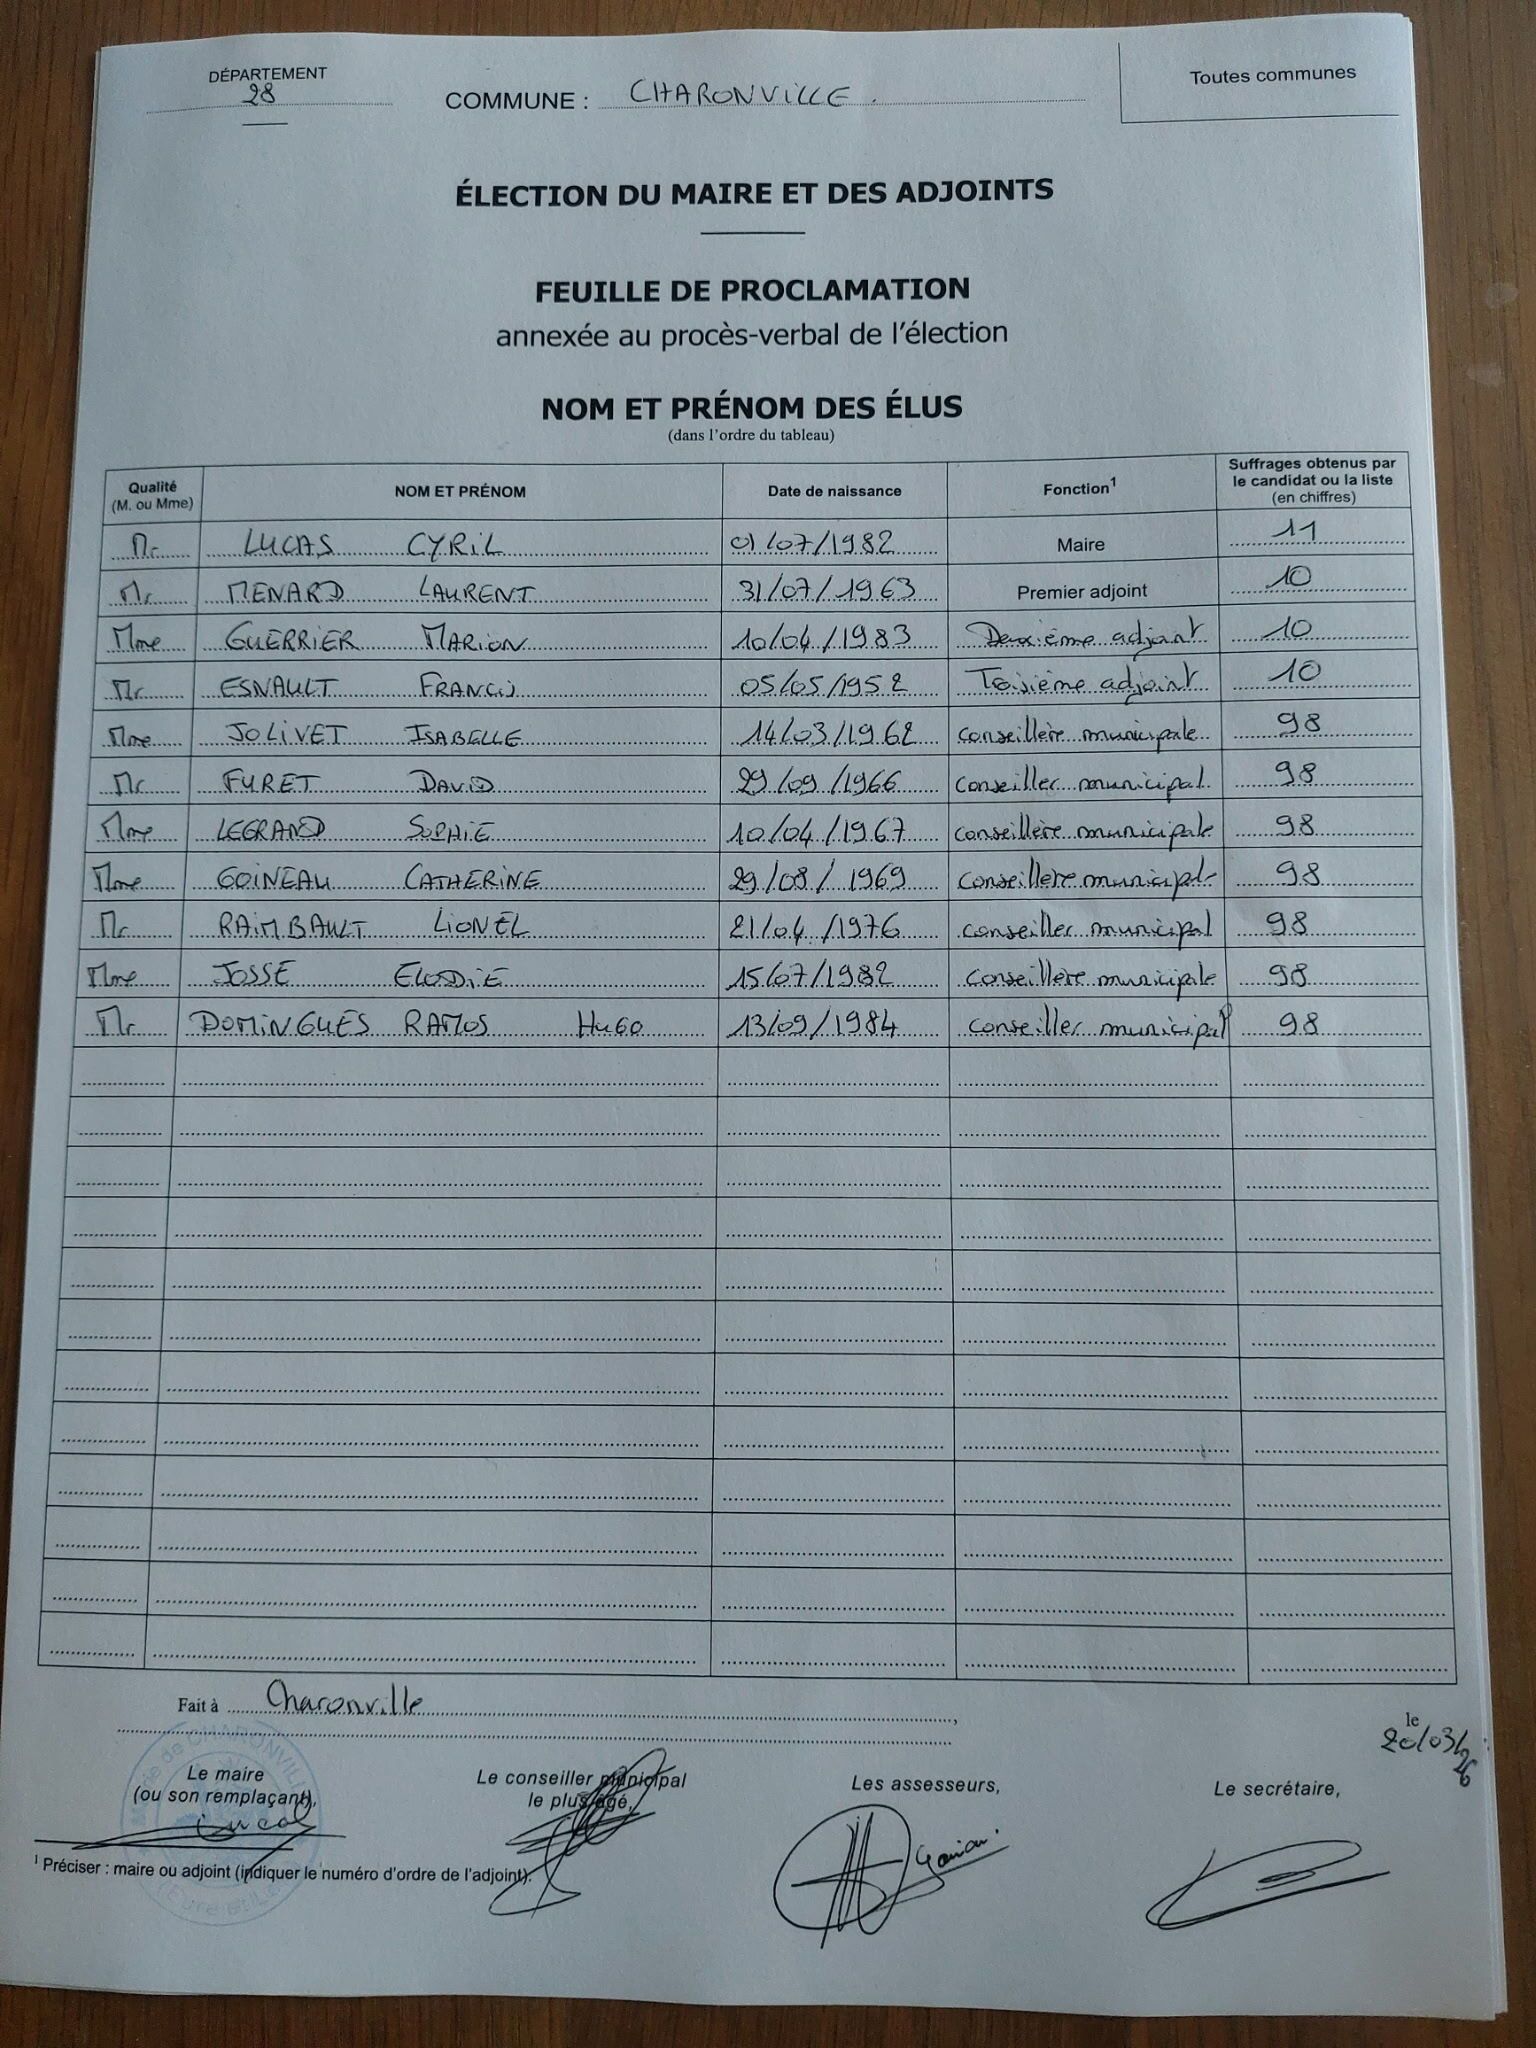 DÉPARTEMENT
28
COMMUNE : CHARONVILLE.
Toutes communes
ÉLECTION DU MAIRE ET DES ADJOINTS
FEUILLE DE PROCLAMATION
annexée au procès-verbal de l'élection
NOM ET PRÉNOM DES ÉLUS
(dans l'ordre du tableau)
Qualité (M. ou Mme) NOM ET PRÉNOM Date de naissance Fonction¹ Suffrages obtenus par le candidat ou la liste (en chiffres)
Mr LUCAS CYRIL 01/07/1982 Maire 11
Mr MENARD LAURENT 31/07/1963 Premier adjoint 10
Mme GUERRIER MARION 10/04/1983 Deuxième adjoint 10
Mr ESNAULT FRANCIS 05/05/1952 Toisième adjoint 10
Mme JOLIVET ISABELLE 14/03/1962 conseillère municipale 98
Mr FURET DAVID 29/09/1966 conseiller municipal 98
Mme LEGRAND SOPHIE 10/04/1967 conseillère municipale 98
Mme GOINEAU CATHERINE 29/08/1969 conseillère municipale 98
Mr RAIMBAULT LIONEL 21/04/1976 conseiller municipal 98
Mme JOSSE ELODIE 15/07/1982 conseillère municipale 98
Mr DOMINGUES RAMOS HUGO 13/09/1984 conseiller municipal 98
Fait à Charonville,
le 20/03/26
Mairie de CHARONVILLE
Le maire
(ou son remplaçant),
Lucas
Le conseiller municipal
le plus âgé,
Les assesseurs,
Le secrétaire,
¹ Préciser : maire ou adjoint (indiquer le numéro d'ordre de l'adjoint).